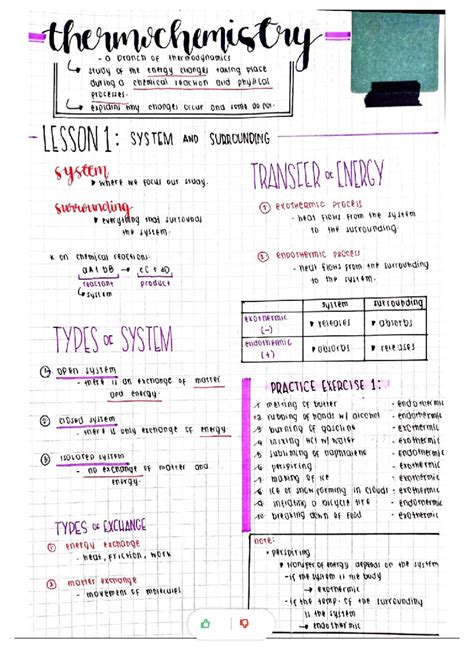 thermochemistry
- a branch of thermodynamics
↳ study of the energy changes taking place
during a chemical reaction and physical
processes.
↳ explains why changes occur and some do not.
LESSON 1: SYSTEM AND SURROUNDING
system
▸ where we focus our study.
surrounding
▸ everything that surrounds
the system.
* on chemical reactions:
aA + bB → cC + dD
reactant product
↳ system
TYPES OF SYSTEM
① open system
- there is an exchange of matter
and energy.
② closed system
- there is only exchange of energy.
③ isolated system
- no exchange of matter and
energy.
TYPES OF EXCHANGE
① energy exchange
- heat, friction, work
② matter exchange
- movement of molecules
TRANSFER OF ENERGY
① exothermic process
- heat flows from the system
to the surrounding.
② endothermic process
- heat flows from the surrounding
to the system.
system surrounding
exothermic (-) ▸ releases ▸ absorbs
endothermic (+) ▸ absorbs ▸ releases
PRACTICE EXERCISE 1:
1. melting of butter - endothermic
2. rubbing of hands w/ alcohol - endothermic
3. burning of gasoline - exothermic
4. mixing HCl w/ water - exothermic
5. subliming of naphthalene - endothermic
6. perspiring - exothermic
7. making of ice - exothermic
8. ice or snow forming in clouds - exothermic
9. inflating a bicycle tire - endothermic
10. breaking down of food - exothermic
note:
• perspiring
▸ transfer of energy depends on the system
- if the system is the body
→ exothermic
- if the temp. of the surrounding
is the system
→ endothermic